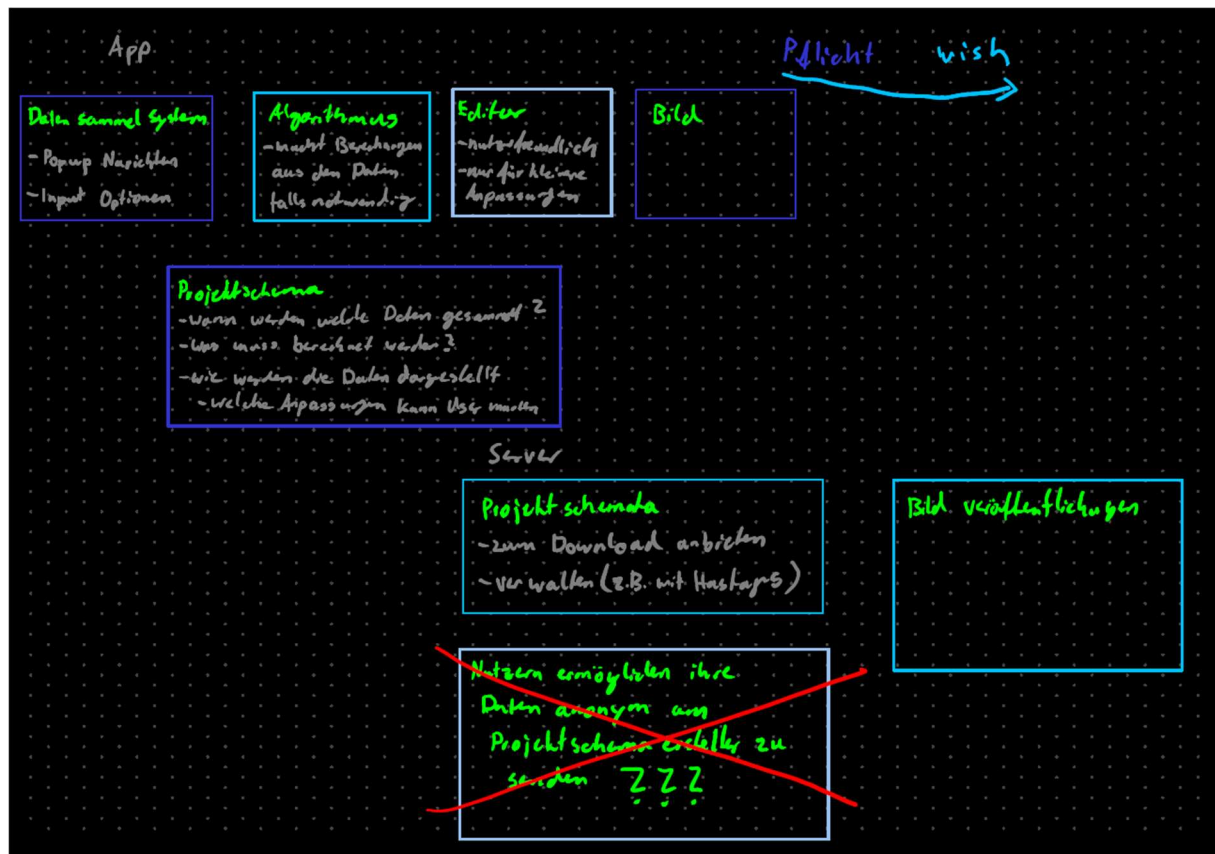 App
Pflicht wish
Daten sammel system
- Popup Narichten
- Input Optionen
Algorithmus
- macht Berechungen
aus den Daten
falls notwendig
Editor
- nutzerfreundlich
- nur für kleine
Anpassungen
Bild
Projektschema
- wann werden welche Daten gesammelt?
- was muss berechnet werden?
- wie werden die Daten dargestellt
- welche Anpassungen kann User machen
Server
Projektschemata
- zum Download anbieten
- verwalten (z.B. mit Hastags)
Bild veröffentlichungen
Nutzern ermöglichen ihre
Daten anonym am
Projektschema ersteller zu
senden ???